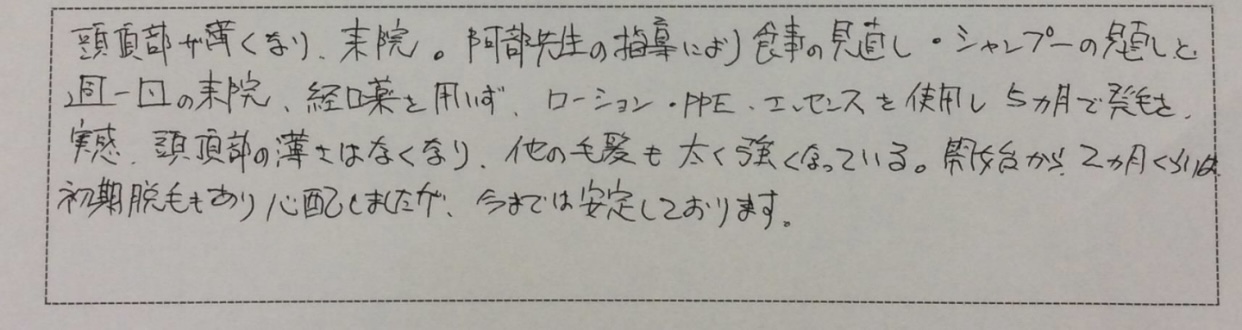 頭頂部が薄くなり、来院。阿部先生の指導により食事の見直し・シャンプーの見直しと
週一回の来院、経口薬を用いず、ローション・PPE・エッセンスを使用し5カ月で発毛を、
実感、頭頂部の薄さはなくなり、他の毛髪も太く強くなっている。開始から2カ月くらいは
初期脱毛もあり心配しましたが、今までは安定しております。